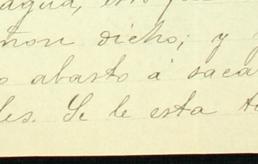 agua, esto
ñon dicho; y
abasto á saca
les. Se le esta